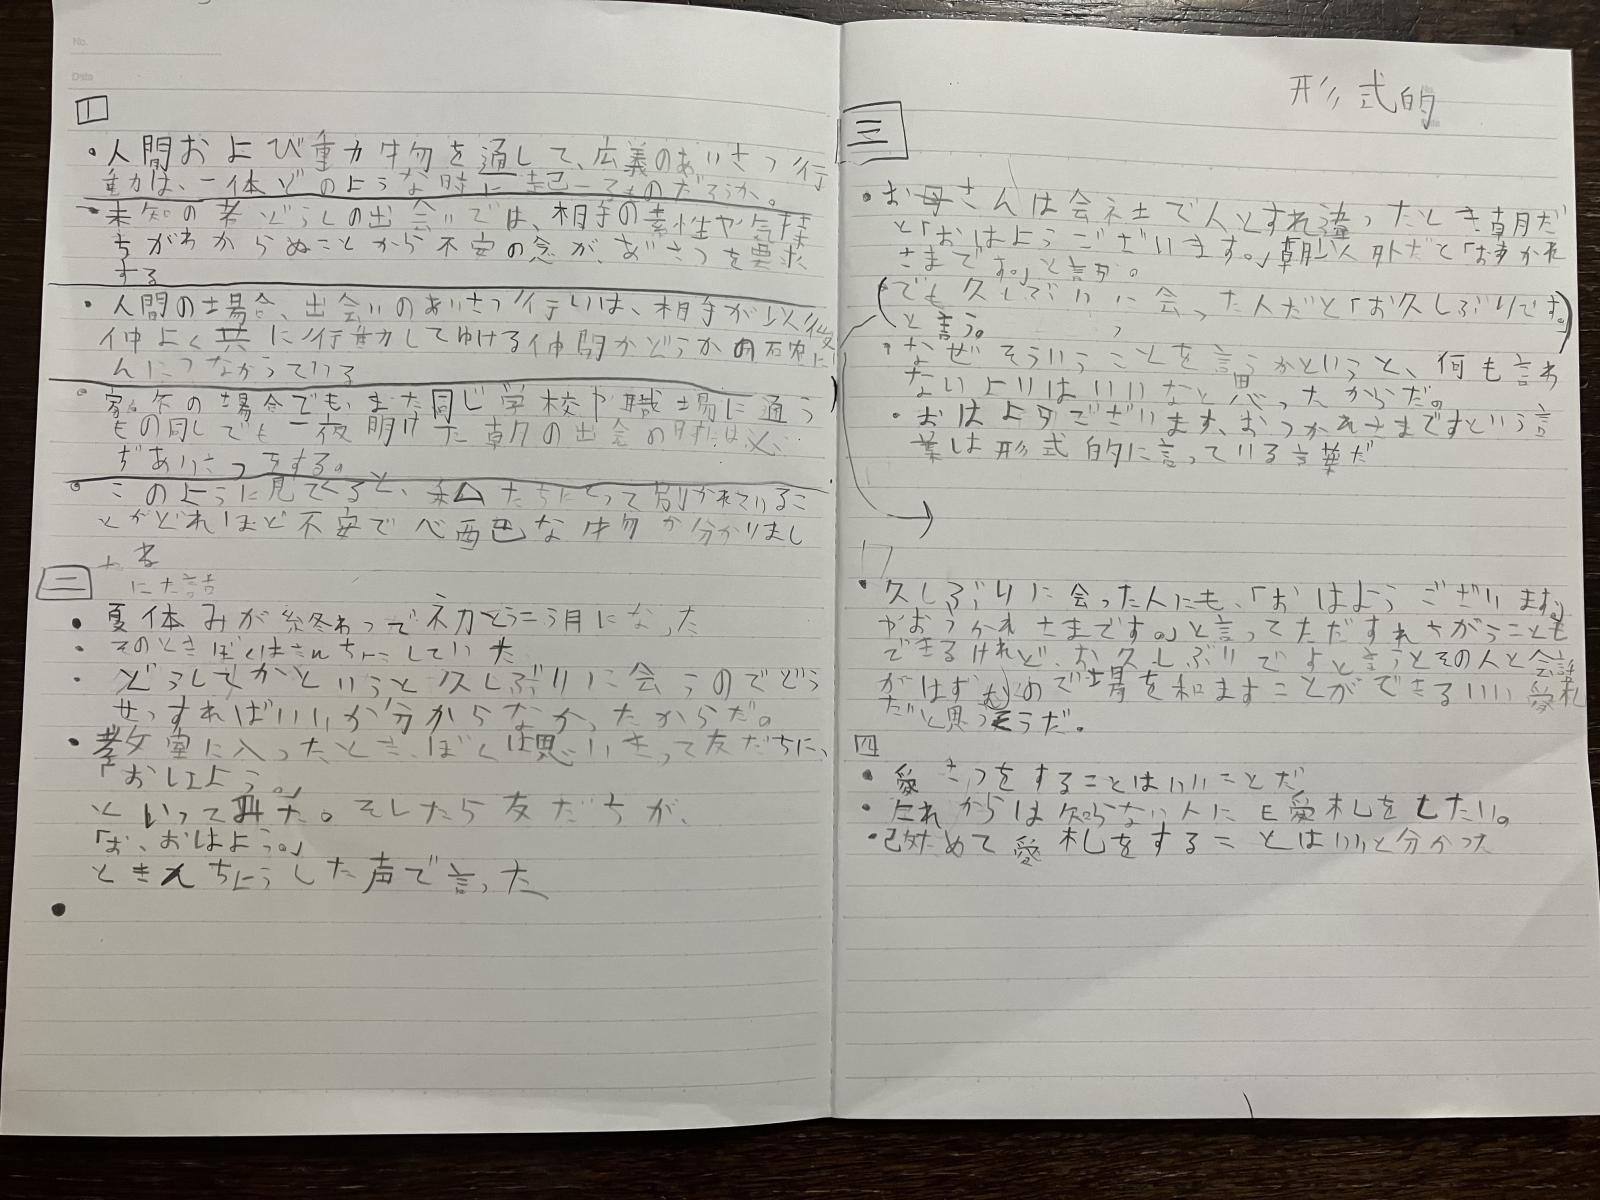 No.
Date
1
・人間および動物を通して、広義のあいさつ行
動は、一体どのような時に起こるものだろうか。
・未知の者どうしの出会いでは、相手の素性や気持
ちがわからぬことから不安の念が、あいさつを要求
する
・人間の場合、出会いのあいさつ行いは、相手が以後
仲よく共に行動してゆける仲間かどうかの確に
んにつながっている
・家族の場合でも、また同じ学校や職場に通う
もの同しでも一夜明けた朝の出会の時には必
ずあいさつをする。
・このように見てくると、私たちにとって別かれているこ
とがどれほど不安で心配な物か分かりまし
た
二
にた話
・夏休みが終わって初とう校日になった
・そのときぼくはきんちょうしていた
・どうしてかというと久しぶりに会うのでどう
せっすればいいか分からなかったからだ。
・教室に入ったとき、ぼくは思いきって友だちに、
「おはよう。」
といって見た。そしたら友だちが、
「お、おはよう。」
ときんちょうした声で言った
・
形式的
三
・お母さんは会社で人とすれ違ったとき朝だ
と「おはようございます。」朝以外だと「おつかれ
さまです。」と言う。
(でも久しぶりに会った人だと「お久しぶりです。」)
と言う。
・なぜそういうことを言うかというと、何も言わ
ないよりはいいなと思ったからだ。
・おはようございます、おつかれさまですという言
葉は形式的に言っている言葉だ
・久しぶりに会った人にも、「おはようございます。」
やおつかれさまです。」と言ってただすれちがうことも
できるけれど、お久しぶりですと言うとその人と会話
がはずむので場を和ますことができるいい愛札
だと思ったそうだ。
四
・愛さつをすることはいいことだ
・これからは知らない人にも愛札をしたい。
・改めて愛札をすることはいいと分かった